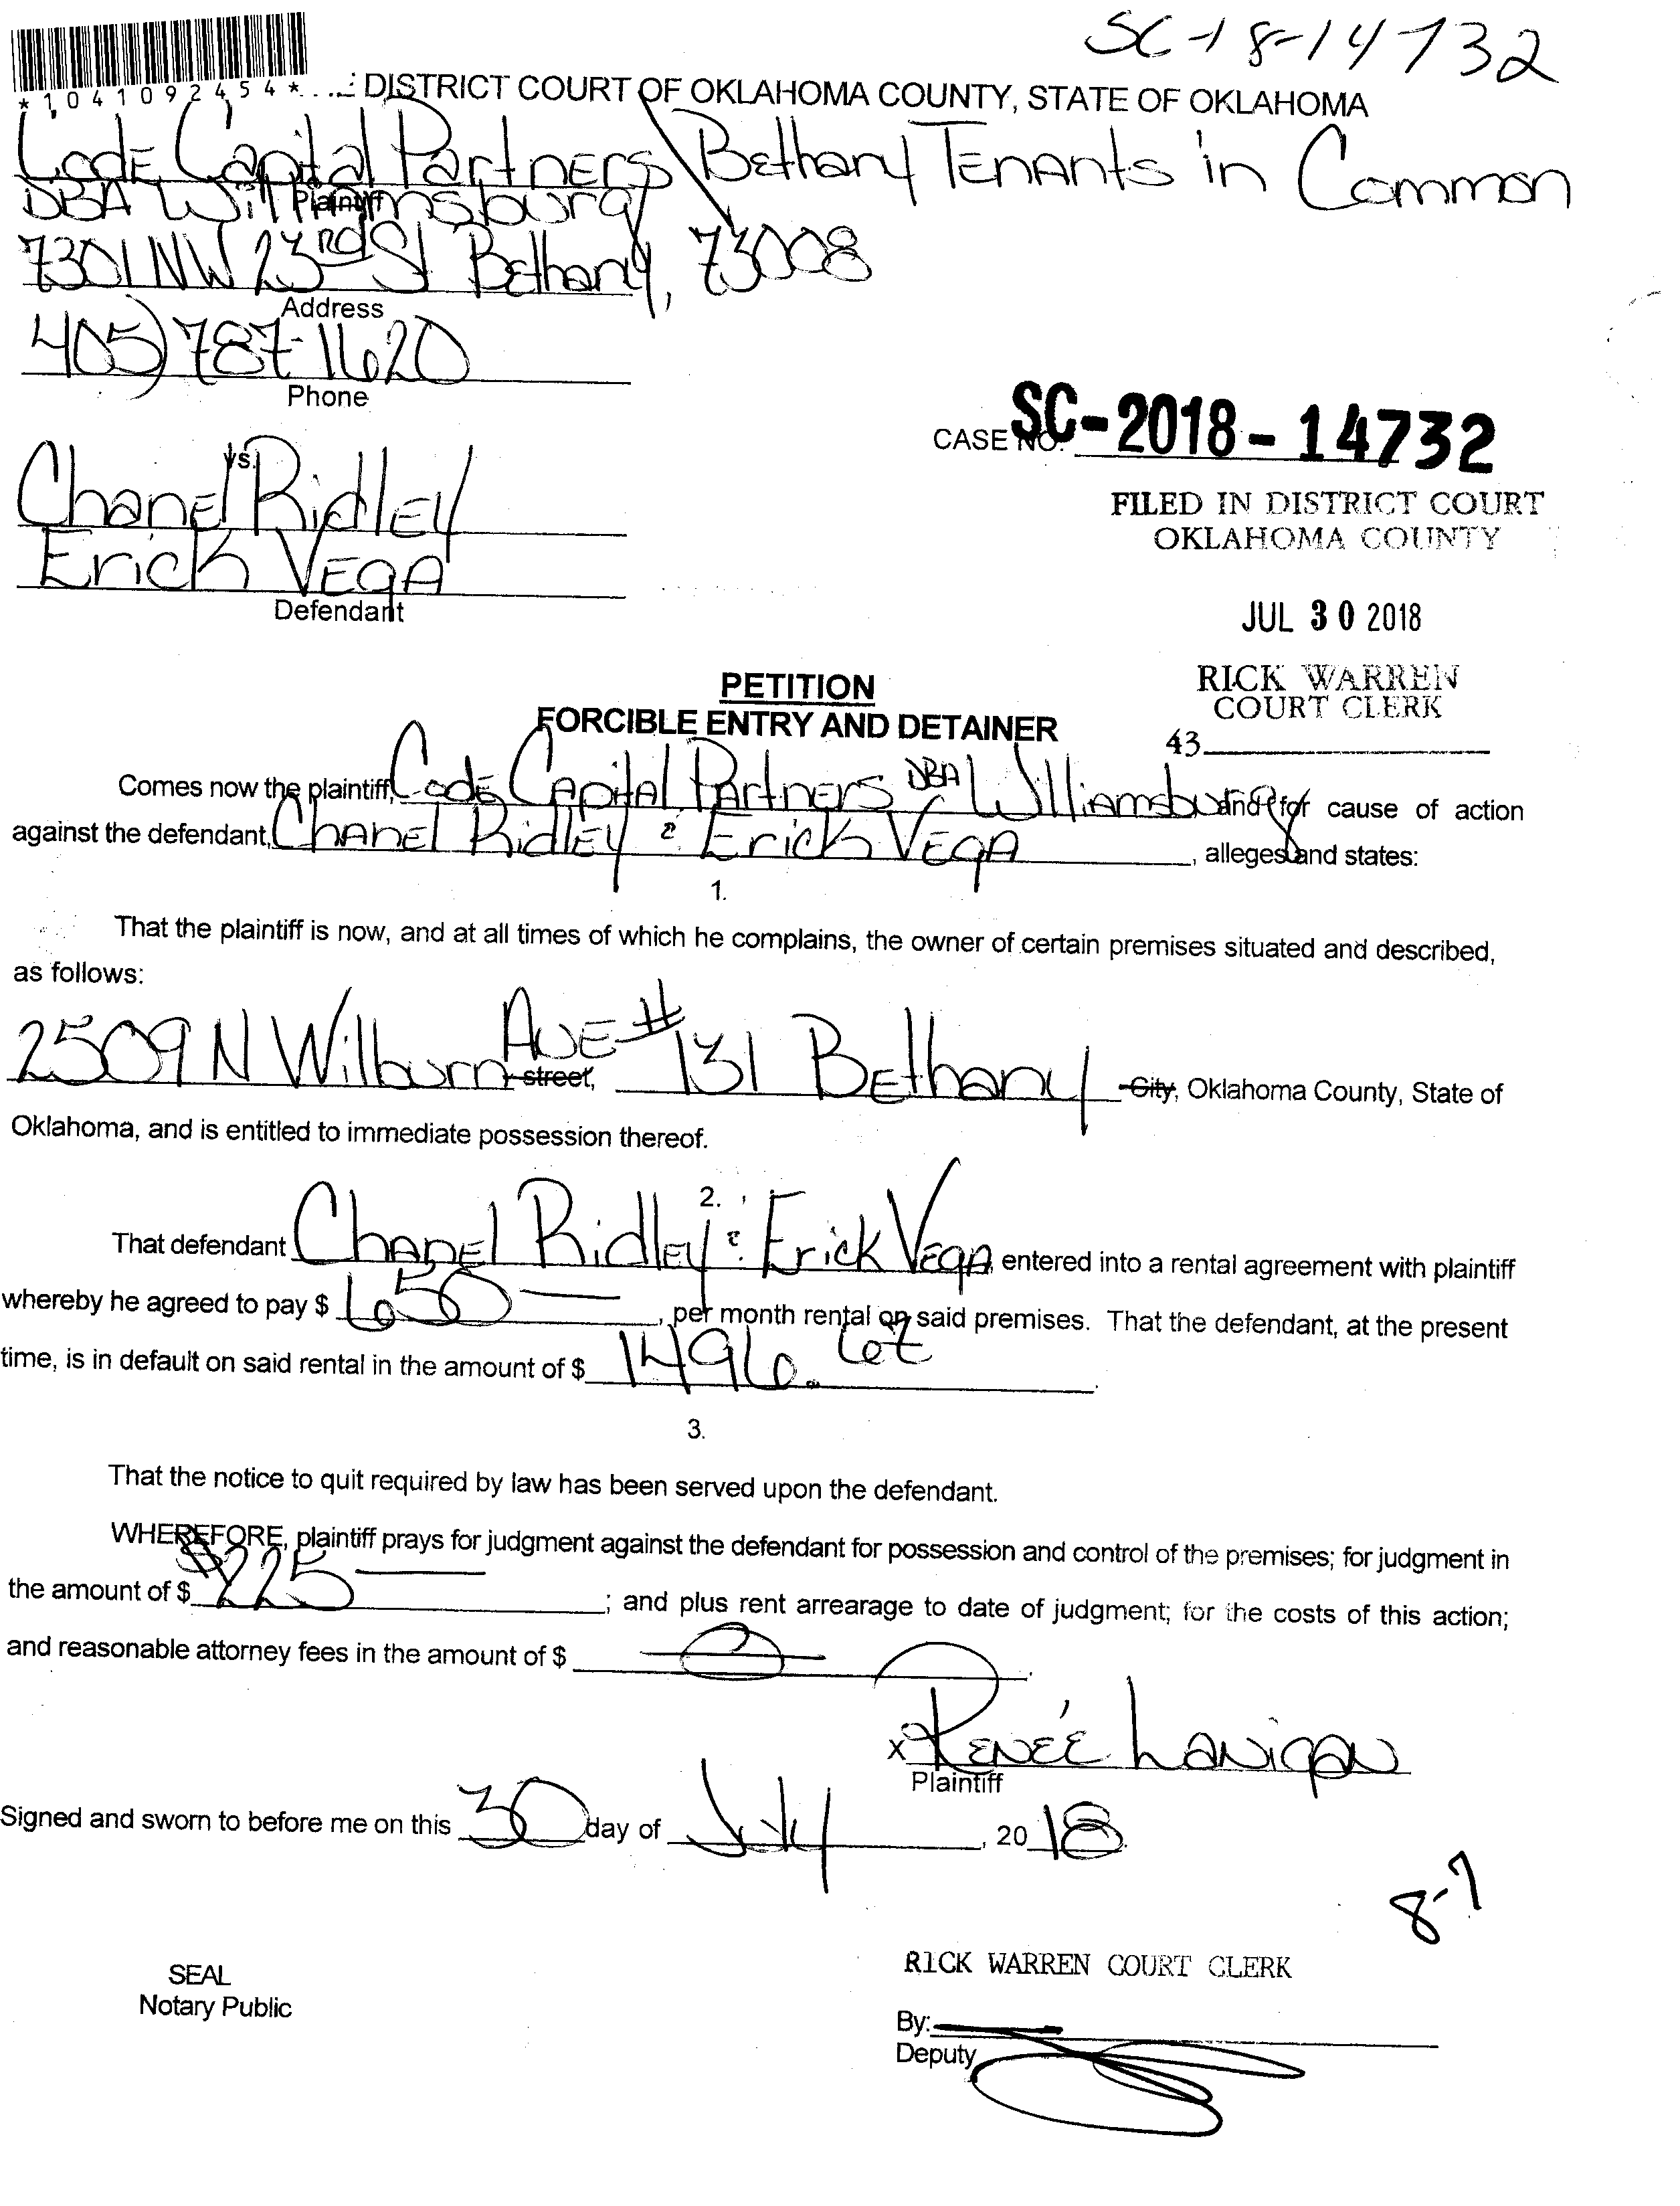 SC-18-14732
*1041092454*
DISTRICT COURT OF OKLAHOMA COUNTY, STATE OF OKLAHOMA
Code Capital Partners / Bethany Tenants in Common
DBA Williamsburg
Plaintiff
7301 NW 23rd St Bethany, 73008
Address
405) 787-1620
Phone
CASE NO. SC-2018-14732
vs.
Chanel Ridley
FILED IN DISTRICT COURT
OKLAHOMA COUNTY
Erick Vega
Defendant
JUL 30 2018
PETITION
FORCIBLE ENTRY AND DETAINER
RICK WARREN
COURT CLERK
43
Comes now the plaintiff, Code Capital Partners DBA Williamsburg and for cause of action
against the defendant, Chanel Ridley & Erick Vega, alleges and states:
1.
That the plaintiff is now, and at all times of which he complains, the owner of certain premises situated and described,
as follows:
2509 N Wilburn Ave street, #131 Bethany City, Oklahoma County, State of
Oklahoma, and is entitled to immediate possession thereof.
2.
That defendant Chanel Ridley & Erick Vega, entered into a rental agreement with plaintiff
whereby he agreed to pay $ 650—, per month rental on said premises. That the defendant, at the present
time, is in default on said rental in the amount of $ 1496.
3.
That the notice to quit required by law has been served upon the defendant.
WHEREFORE, plaintiff prays for judgment against the defendant for possession and control of the premises; for judgment in
the amount of $ $225—; and plus rent arrearage to date of judgment; for the costs of this action;
and reasonable attorney fees in the amount of $
x Renée Lanigan
Plaintiff
Signed and sworn to before me on this 30 day of July, 2018
8-7
SEAL
Notary Public
RICK WARREN COURT CLERK
By:
Deputy